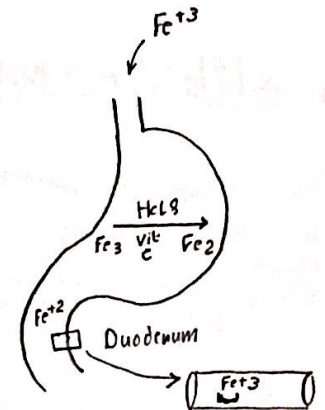 Fe+3
Hcl &
Fe3 vit C Fe2
Fe+2
Duodenum
Fe+3